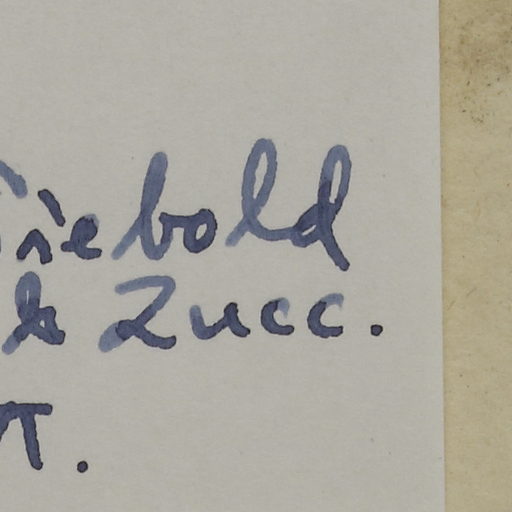 Siebold
& Zucc.